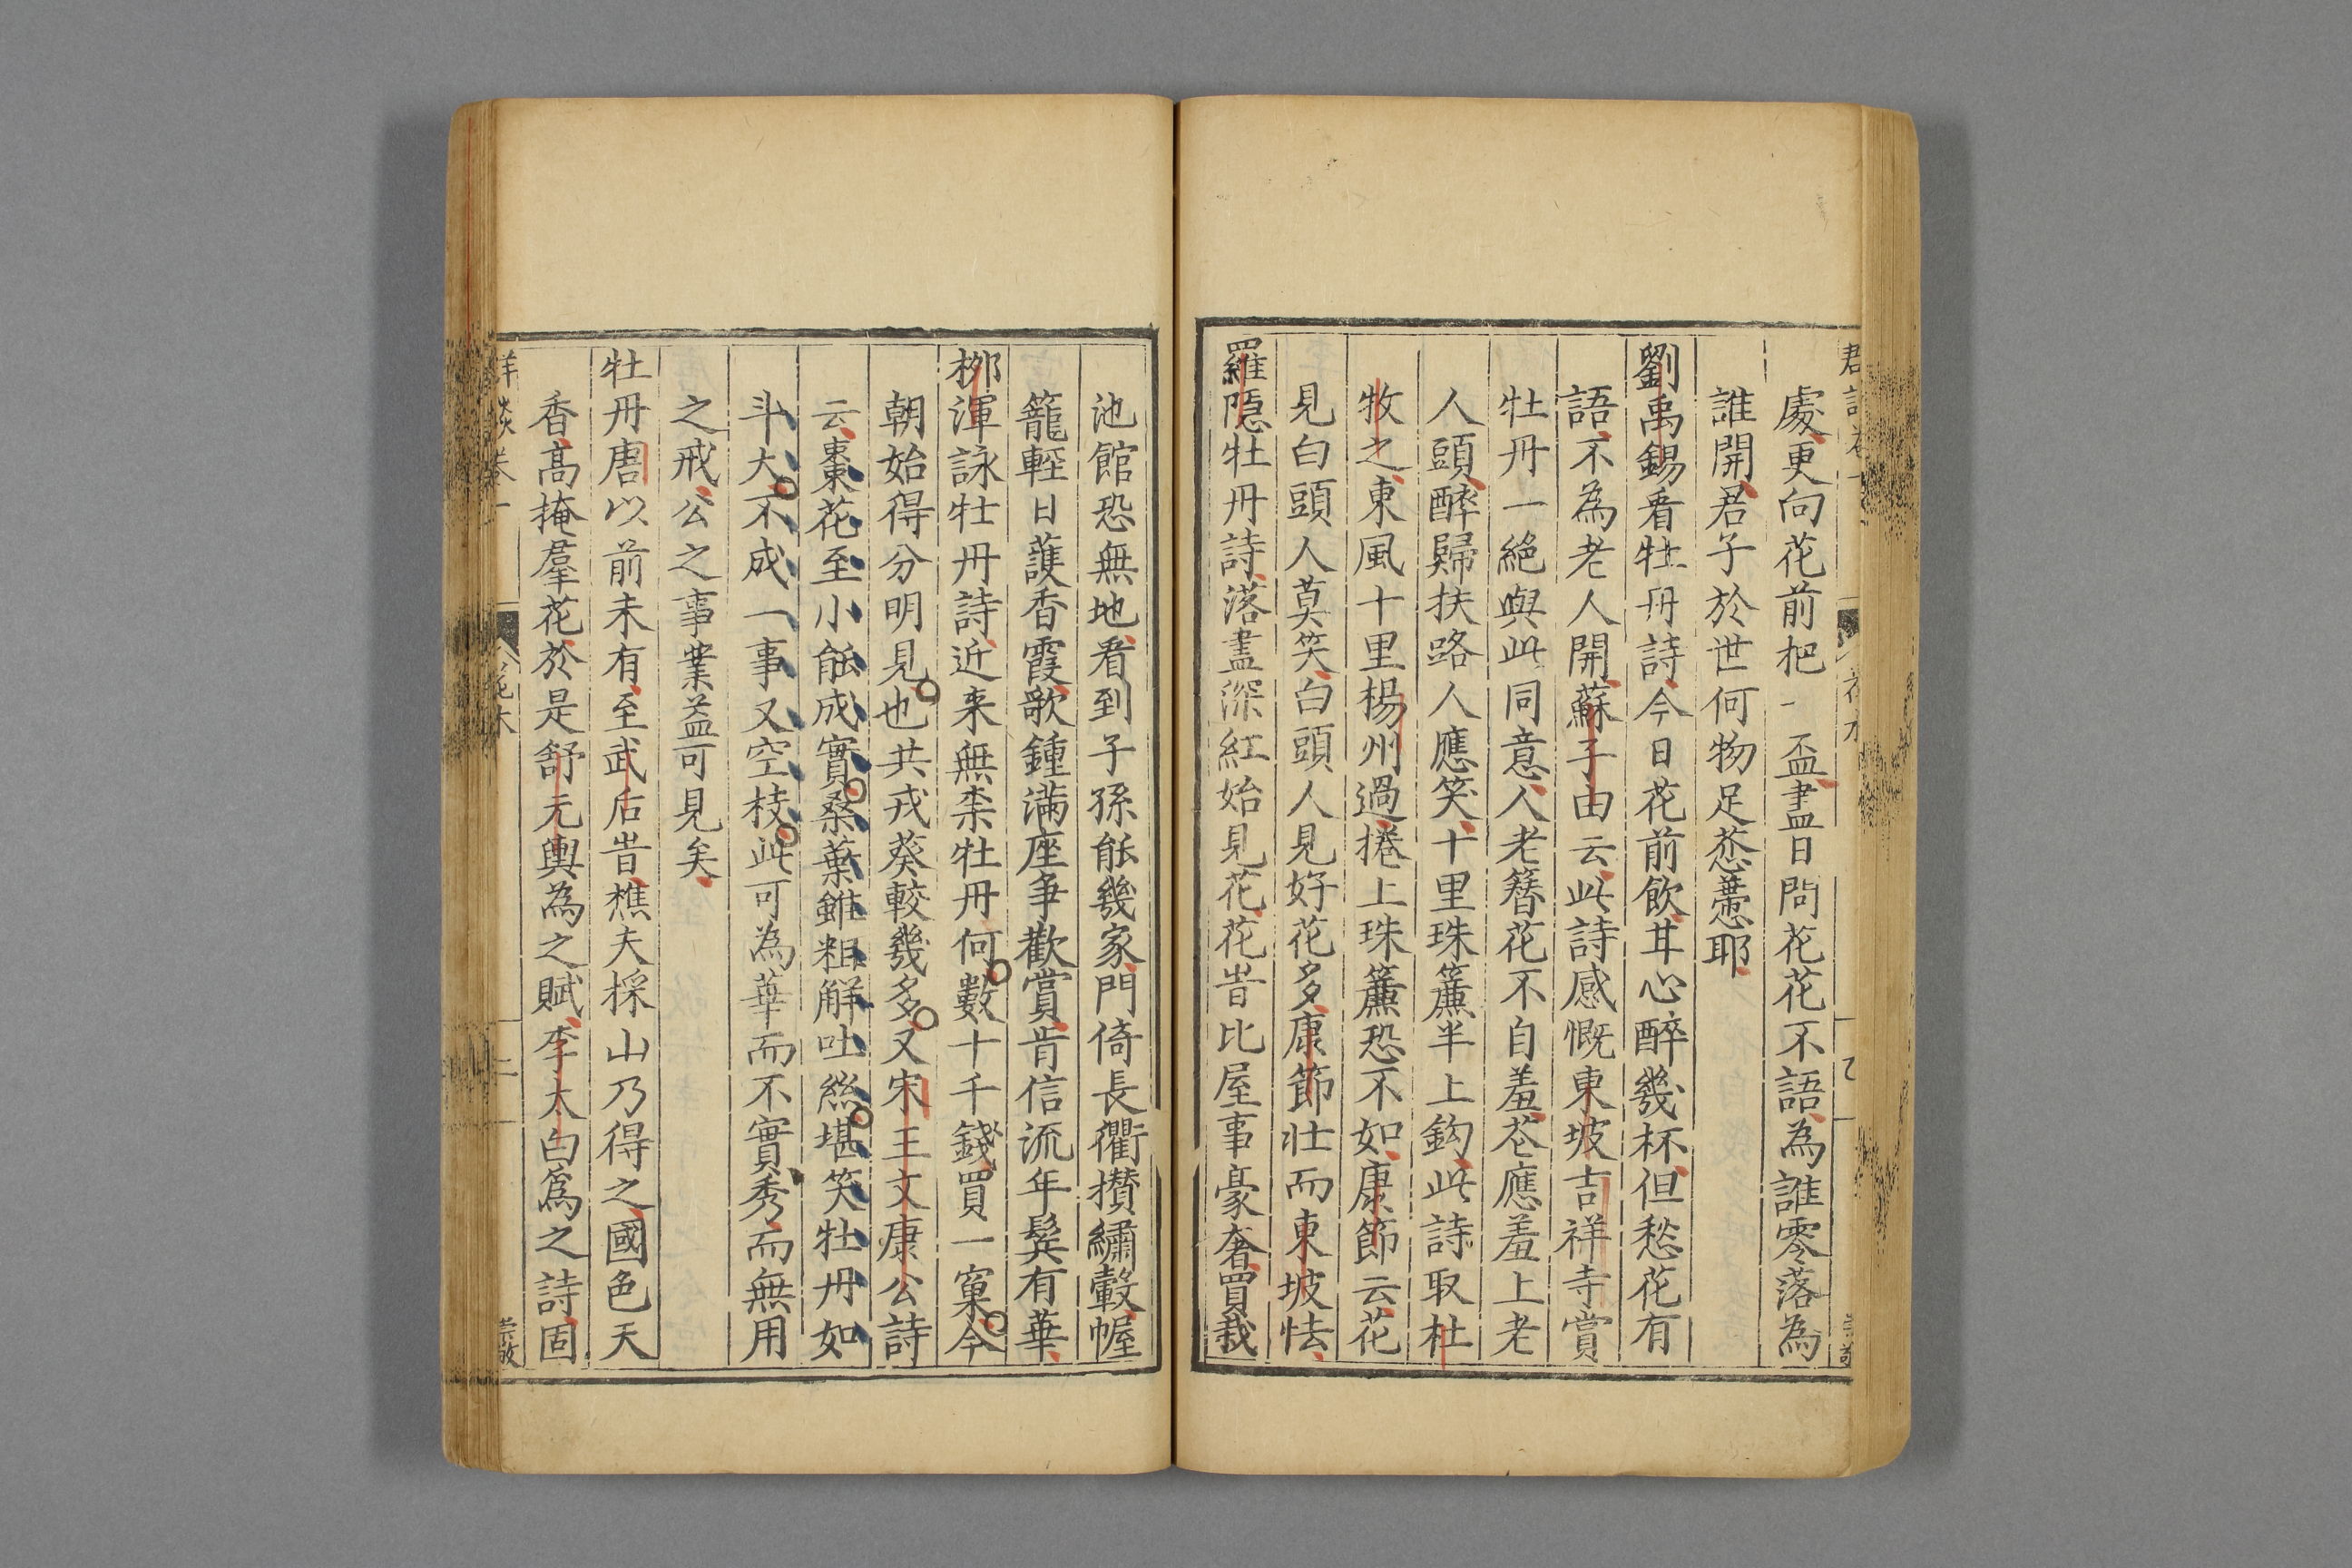 處更向花前把一盃盡日問花花不語為誰零落為
誰開君子於世何物足芥蔕耶
劉禹錫看牡丹詩今日花前飲甘心醉幾杯但愁花有
語不為老人開蘇子由云此詩感慨東坡吉祥寺賞
牡丹一絕與此同意人老簪花不自羞花應羞上老
人頭醉歸扶路人應笑十里珠簾半上鈎此詩取杜
牧之東風十里楊州過捲上珠簾恐不如康節云花
見白頭人莫笑白頭人見好花多康節壯而東坡怯
羅隠牡丹詩落盡深紅始見花花旹比屋事豪奢買栽
池館恐無地看到子孫能幾家門倚長衢攢繡轂幄
籠輕日護香霞歌鍾滿座争歡賞肯信流年鬂有華
栁渾詠牡丹詩近来無柰牡丹何數十千錢買一窠今
朝始得分明見也共戎葵較幾多又宋王文康公詩
云棗花至小能成實桑葉雖粗解吐絲堪笑牡丹如
斗大不成一事又空枝此可為華而不實秀而無用
之戒公之事業盖可見矣
牡丹唐以前未有至武后旹樵夫採山乃得之國色天
香髙掩羣花於是舒元輿為之賦李太白爲之詩固